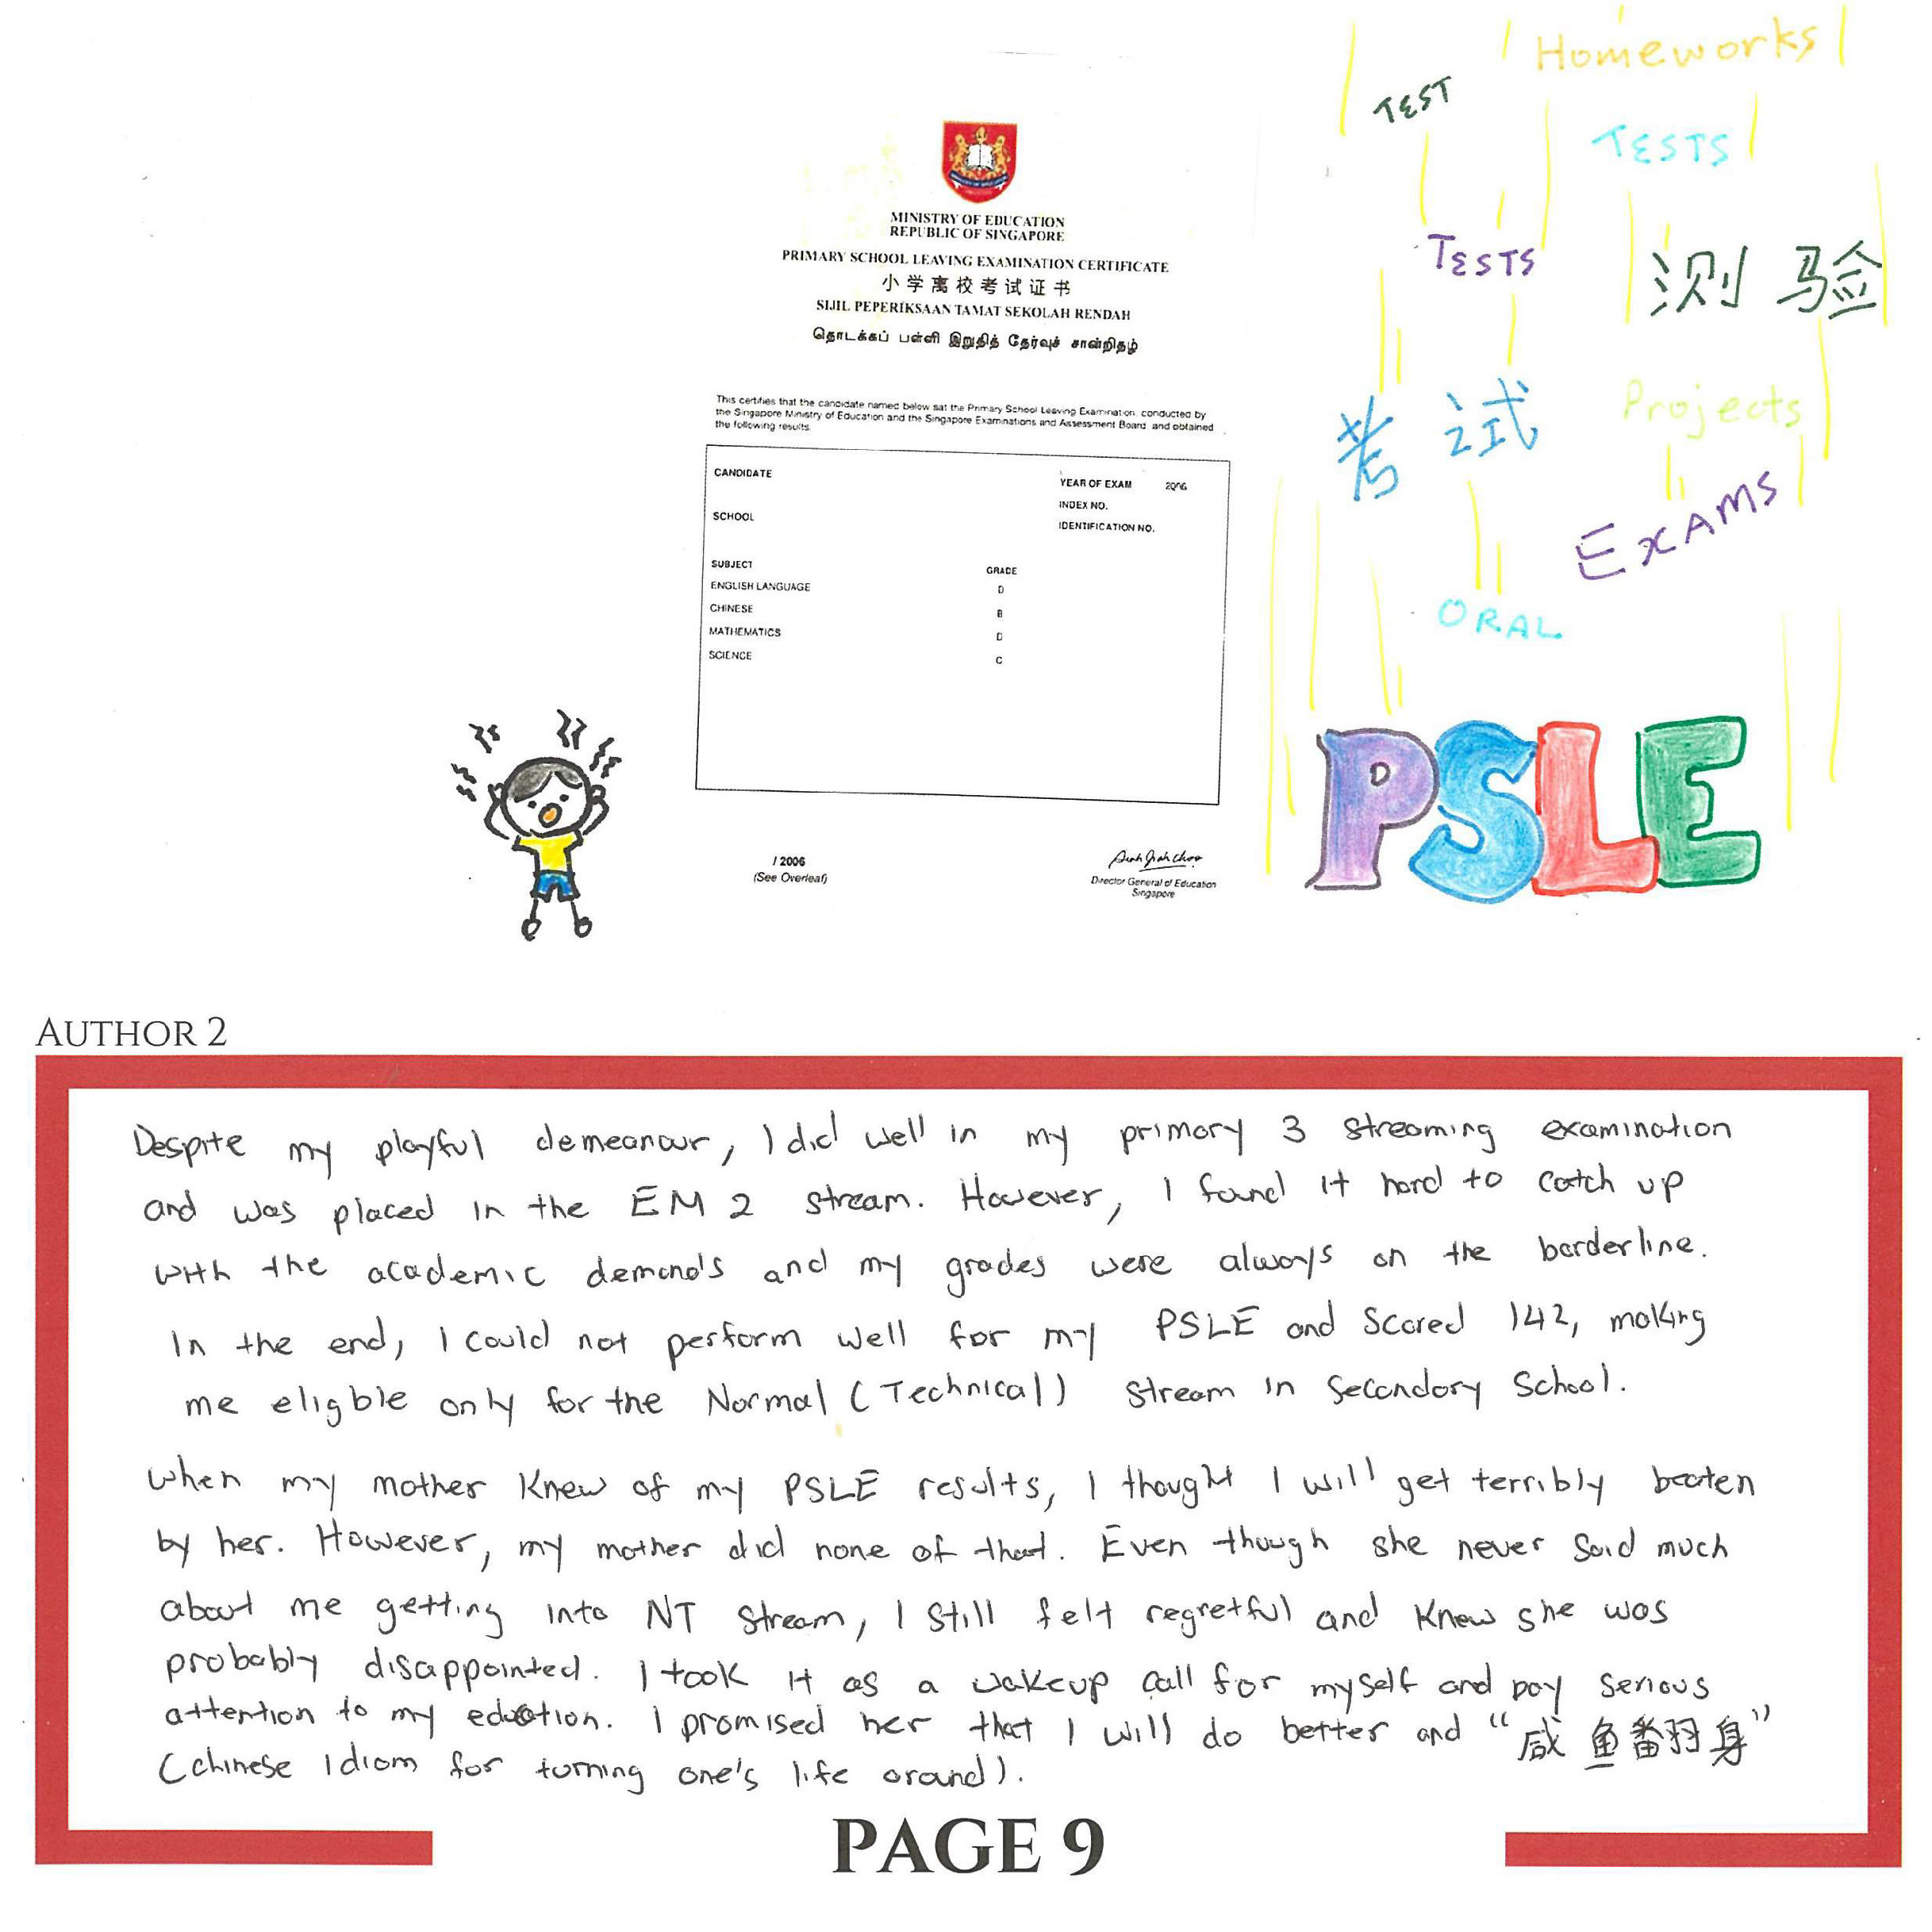 Homeworks
TEST
TESTS
TESTS
测验
考试
Projects
EXAMS
ORAL
PSLE
MINISTRY OF EDUCATION
REPUBLIC OF SINGAPORE
PRIMARY SCHOOL LEAVING EXAMINATION CERTIFICATE
小学离校考试证书
SIJIL PEPERIKSAAN TAMAT SEKOLAH RENDAH
தொடக்கப் பள்ளி இறுதித் தேர்வுச் சான்றிதழ்
This certifies that the candidate named below sat the Primary School Leaving Examination conducted by
the Singapore Ministry of Education and the Singapore Examinations and Assessment Board and obtained
the following results.
CANDIDATE
YEAR OF EXAM 2006
INDEX NO.
SCHOOL
IDENTIFICATION NO.
SUBJECT GRADE
ENGLISH LANGUAGE D
CHINESE B
MATHEMATICS D
SCIENCE C
/ 2006
(See Overleaf)
Director General of Education
Singapore
AUTHOR 2
Despite my playful demeanour, I did well in my primary 3 streaming examination
and was placed in the EM 2 stream. However, I found it hard to catch up
with the academic demands and my grades were always on the borderline.
In the end, I could not perform well for my PSLE and scored 142, making
me eligble only for the Normal (Technical) stream in Secondary School.
When my mother knew of my PSLE results, I thought I will get terribly beaten
by her. However, my mother did none of that. Even though she never said much
about me getting into NT stream, I still felt regretful and knew she was
probably disappointed. I took it as a wakeup call for myself and pay serious
attention to my eduction. I promised her that I will do better and “咸鱼翻身”
(chinese idiom for turning one's life around).
PAGE 9